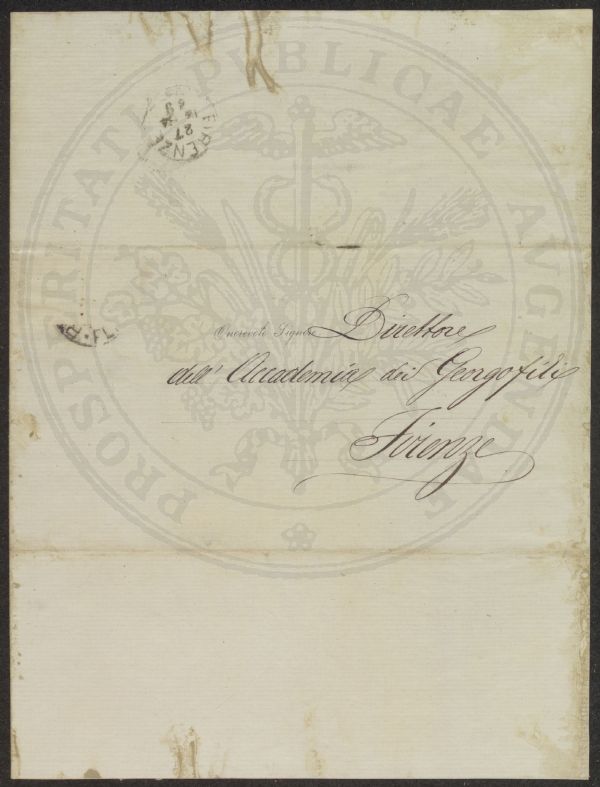 PROSPERITATI PVBLICAE AVGENDAE
FIRENZE
27
69
R • FL
Onorevole Signore Direttore
dell' Accademia dei Georgofili
Firenze